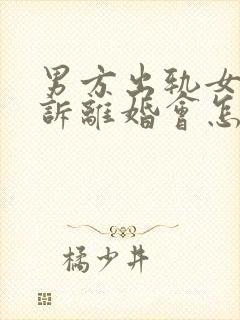 男方出轨女
訴離婚會怎
橘少井